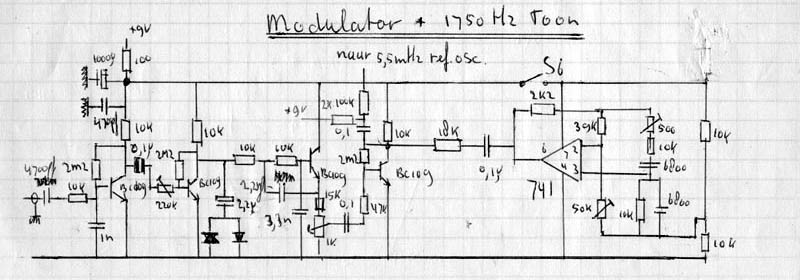 Modulator + 1750 Hz Toon
+9V
naar 5,5mHz ref.osc.
S6
1000µ
100
2K2
+9V
2x100k
4700p
10k
10k
0,1
10k
18k
39k
500
10k
0,1µ
10k
10k
10k
2m2
2M2
2m2
6
2
4
3
6800
4700p
BC109
BC109
2,2µ
BC109
BC109
0,1µ
741
10k
220k
2,2µ
15k
0,1
47k
50k
10k
6800
3,3n
1n
1k
10k